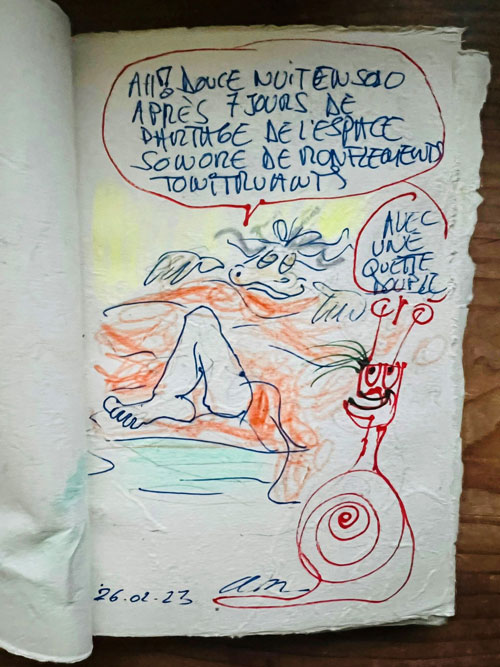 AH!! DOUCE NUIT EN SOLO
APRÈS 7 JOURS DE
PARTAGE DE L'ESPACE
SONORE DE RONFLEMENTS
TONITRUANTS
AVEC
UNE
QUETTE
DOUBLE
26.02.23